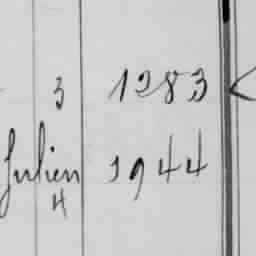 3 1283
Julien 1944
4